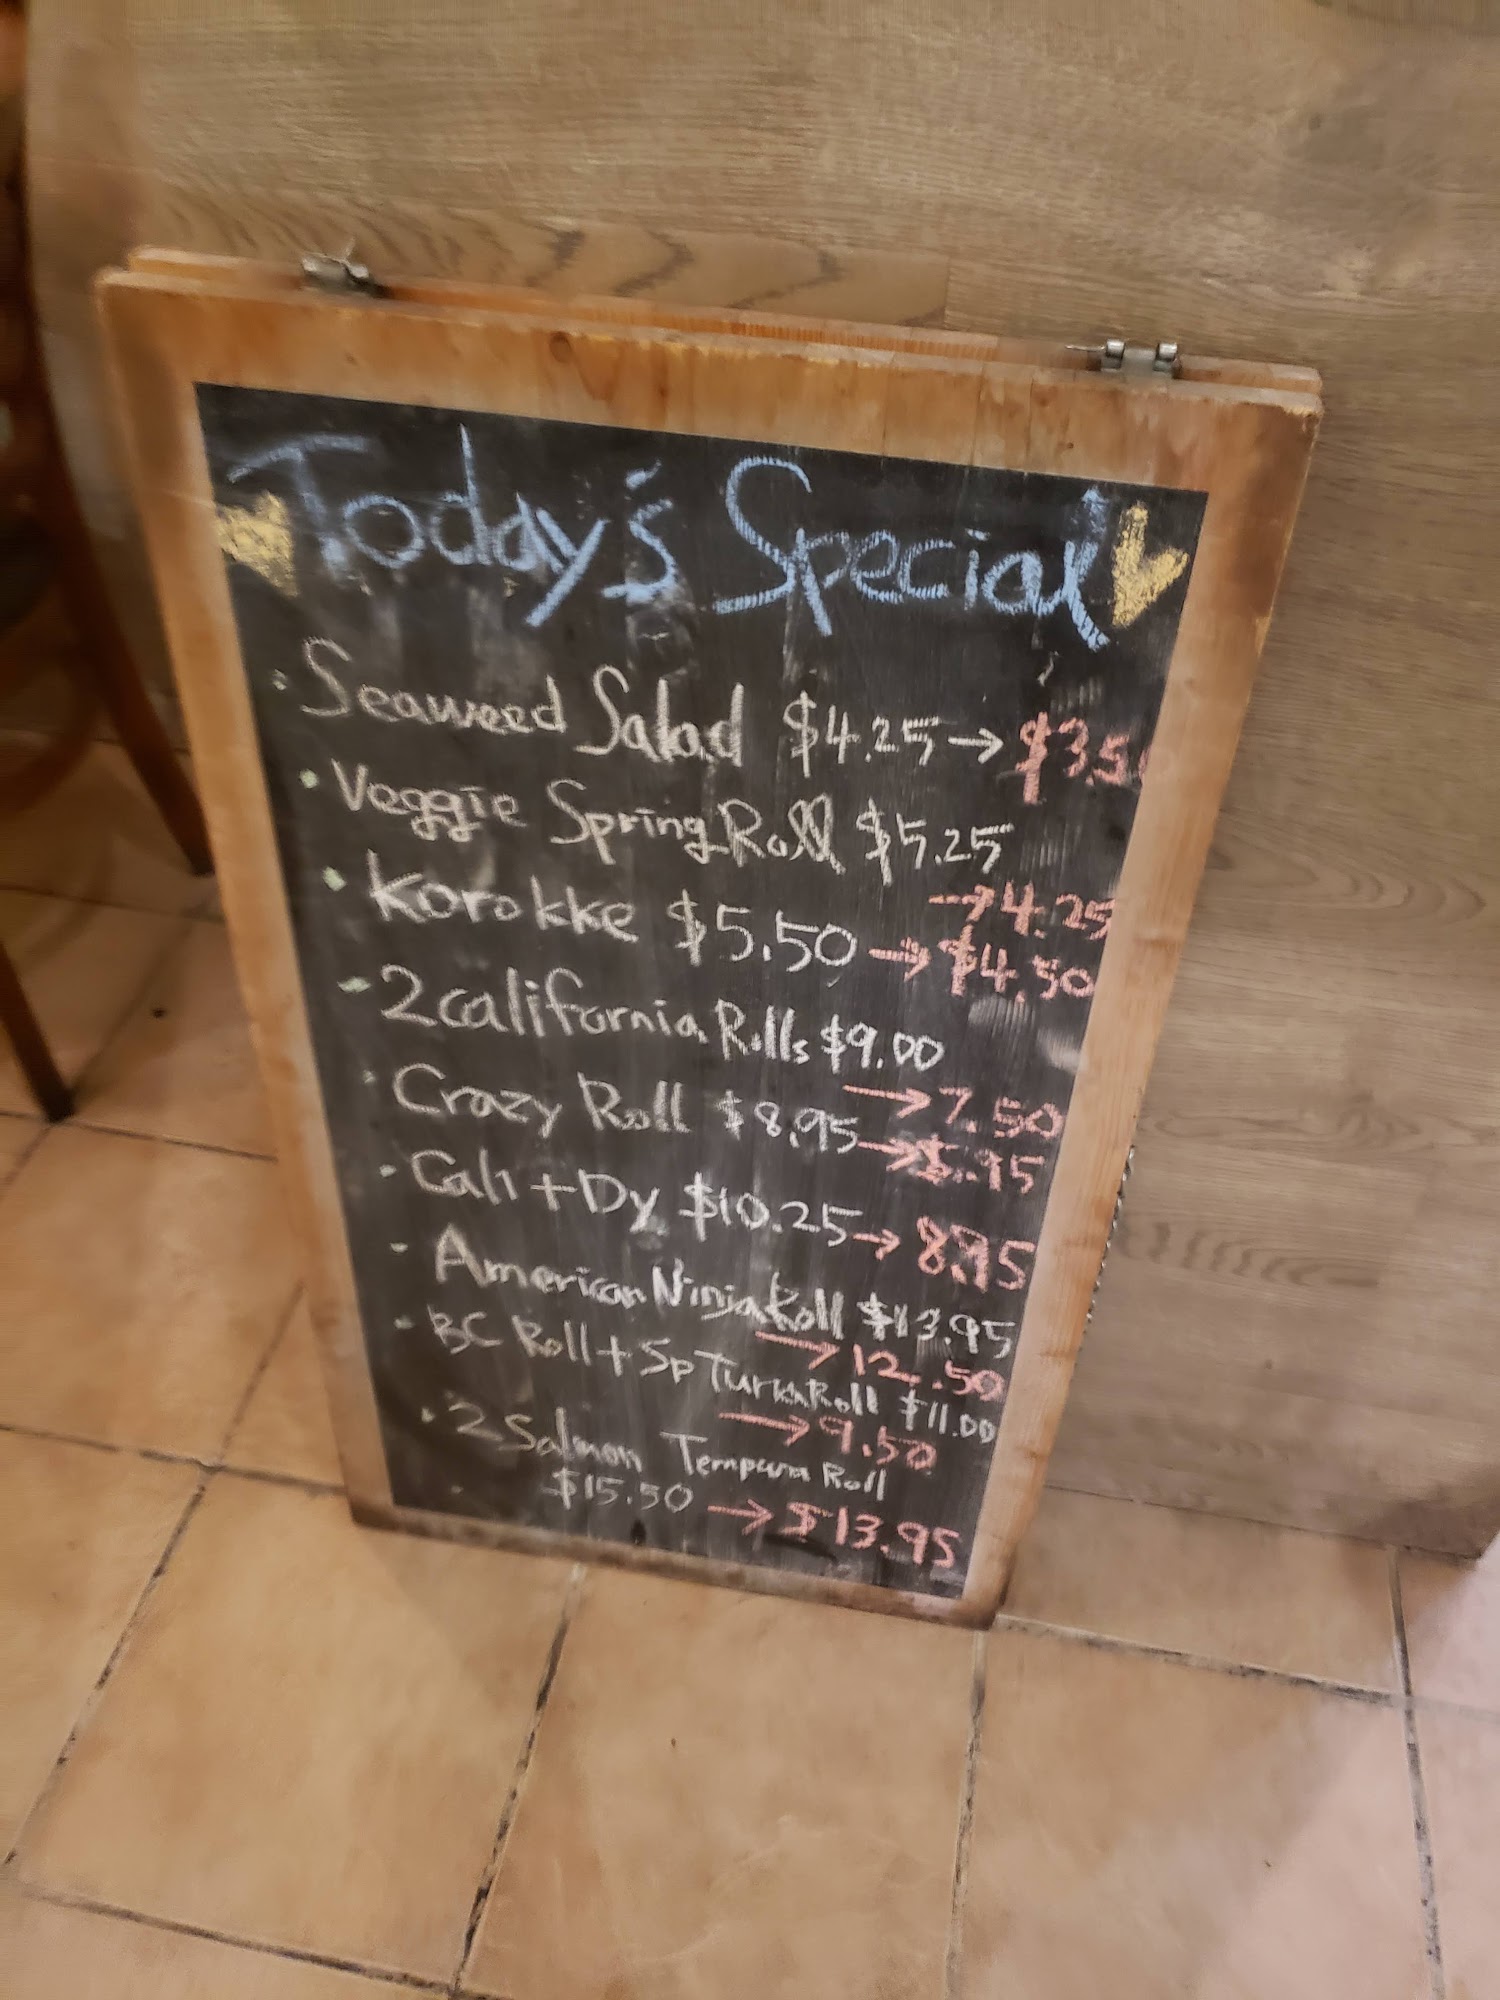 Today's Special
Seaweed Salad $4.25 → $3.50
Veggie Spring Roll $5.25
→ 4.25
Korokke $5.50 → $4.50
2 California Rolls $9.00
→ 7.50
Crazy Roll $8.95 →
Cali + Dy $10.25 → 8.95
American Ninja Roll $13.95
→ 12.50
BC Roll + Sp Tuna Roll $11.00
→ 9.50
2 Salmon Tempura Roll
$15.50 → $13.95